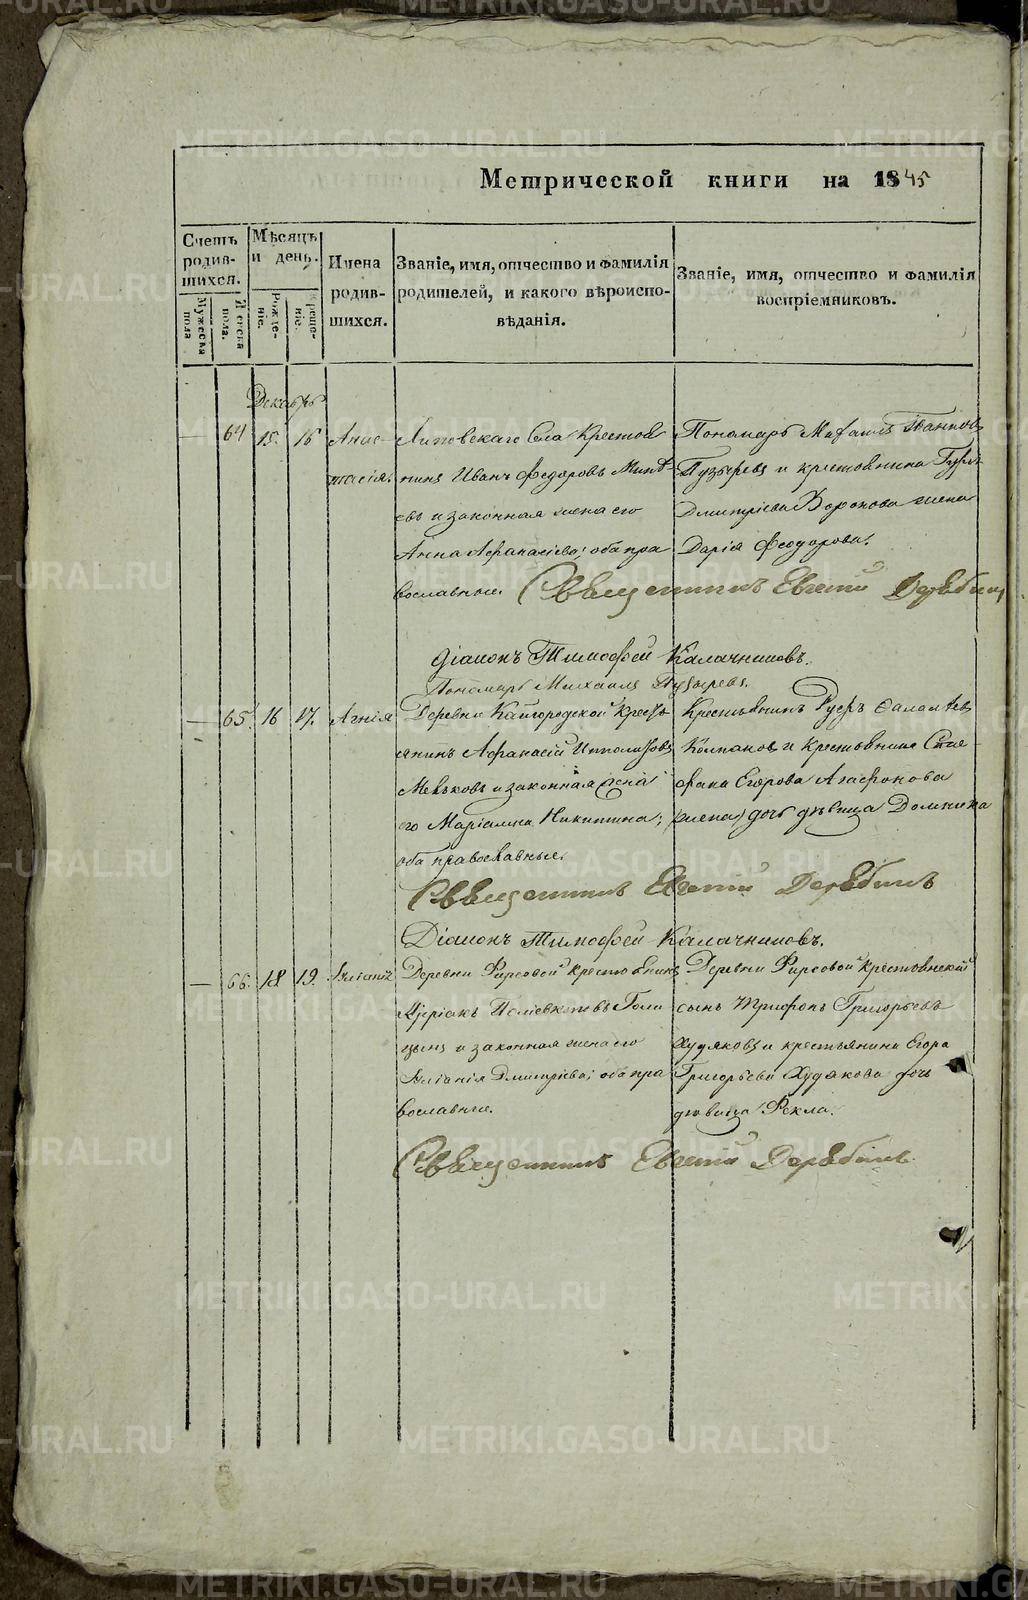 Метрической книги на 1845
Счетъ родив-шихся.
Мужеска пола
Женска пола.
Мѣсяцъ и день.
Рожде-ніе.
Креще-ніе.
Имена родив-шихся.
Званіе, имя, отчество и фамилія родителей, и какого вѣроиспо-вѣданія.
Званіе, имя, отчество и фамилія воспріемниковъ.
Декабрь
— 64 15. 16 Анас-
тасія.
Липовскаго Села Крестья
нинъ Иванъ Федоровъ
евъ и законная жена его
Анна Афанасіева; оба пра
вославные.
Пономарь Михаилъ Ивановъ
Пузыревъ и крестьянина
Дмитріева Воронова жена
Дарія Феодорова.
Священникъ Евгеній Дерябинъ
Діаконъ Тимофей Калачниковъ.
Пономарь Михаилъ Пузыревъ.
— 65. 16 17. Агнія
Деревни Кайгородской Кресть
янинъ Афанасій Ипполитовъ
Меньковъ и законная жена
его Маріамна Никитина;
оба православные.
Крестьянинъ
Колмаковъ и Крестьянина Сте
фана Егорова Агафонова
(жена) дочь дѣвица Домника
Священникъ Евгеній Дерябинъ
Діаконъ Тимофей Калачниковъ.
— 66. 18 19. Іуліанія
Деревни Фирсовой крестьянинъ
Киріакъ Голи
цынъ и законная жена его
Іуліанія Дмитріева; оба пра
вославные.
Деревни Фирсовой Крестьянскій
сынъ Трифонъ Григорьевъ
Худяковъ и крестьянина Егора
Григорьева Худякова дочь
дѣвица Фекла.
Священникъ Евгеній Дерябинъ
METRIKI.GASO-URAL.RU